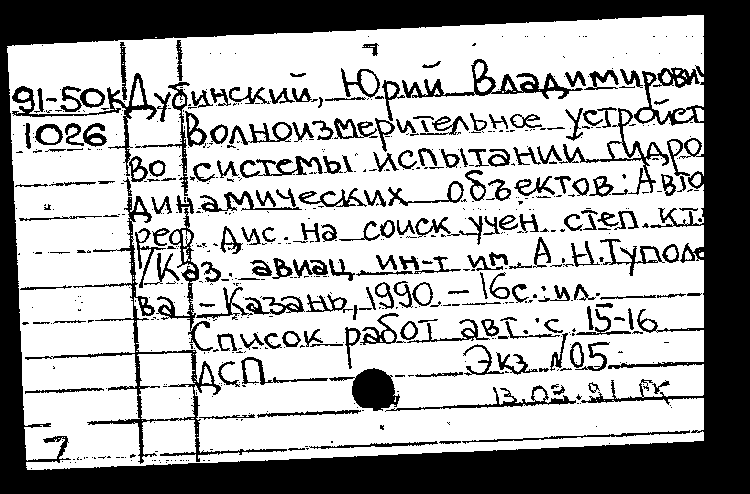 7
91-50К Дубинский, Юрий Владимирович
1026 Волноизмерительное устройст
во системы испытаний гидро
динамических объектов: Авто
реф. дис. на соиск. учен. степ. к.т.
/Каз. авиац. ин-т им. А.Н.Туполе
ва. – Казань, 1990. – 16с.: ил.
Список работ авт.: с. 15-16
ДСП. Экз №05.
13.03.91
7